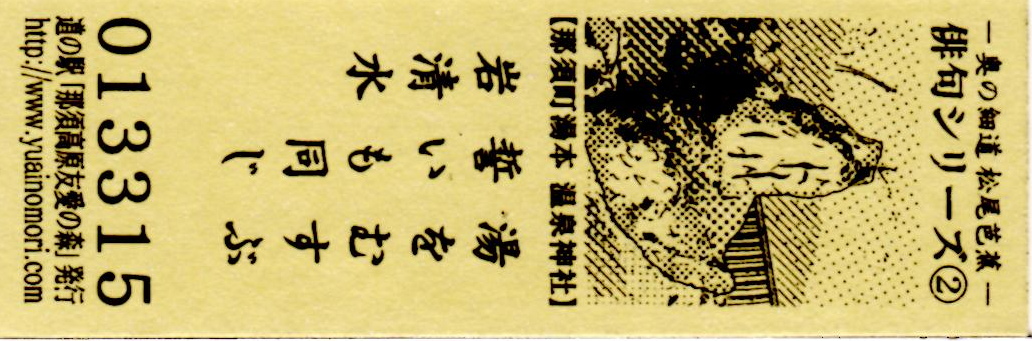 ― 奥の細道 松尾芭蕉 ―
俳句シリーズ②
【那須町湯本 温泉神社】
湯をむすぶ
誓いも同じ
岩清水
013315
道の駅「那須高原友愛の森」発行
http://www.yuainomori.com